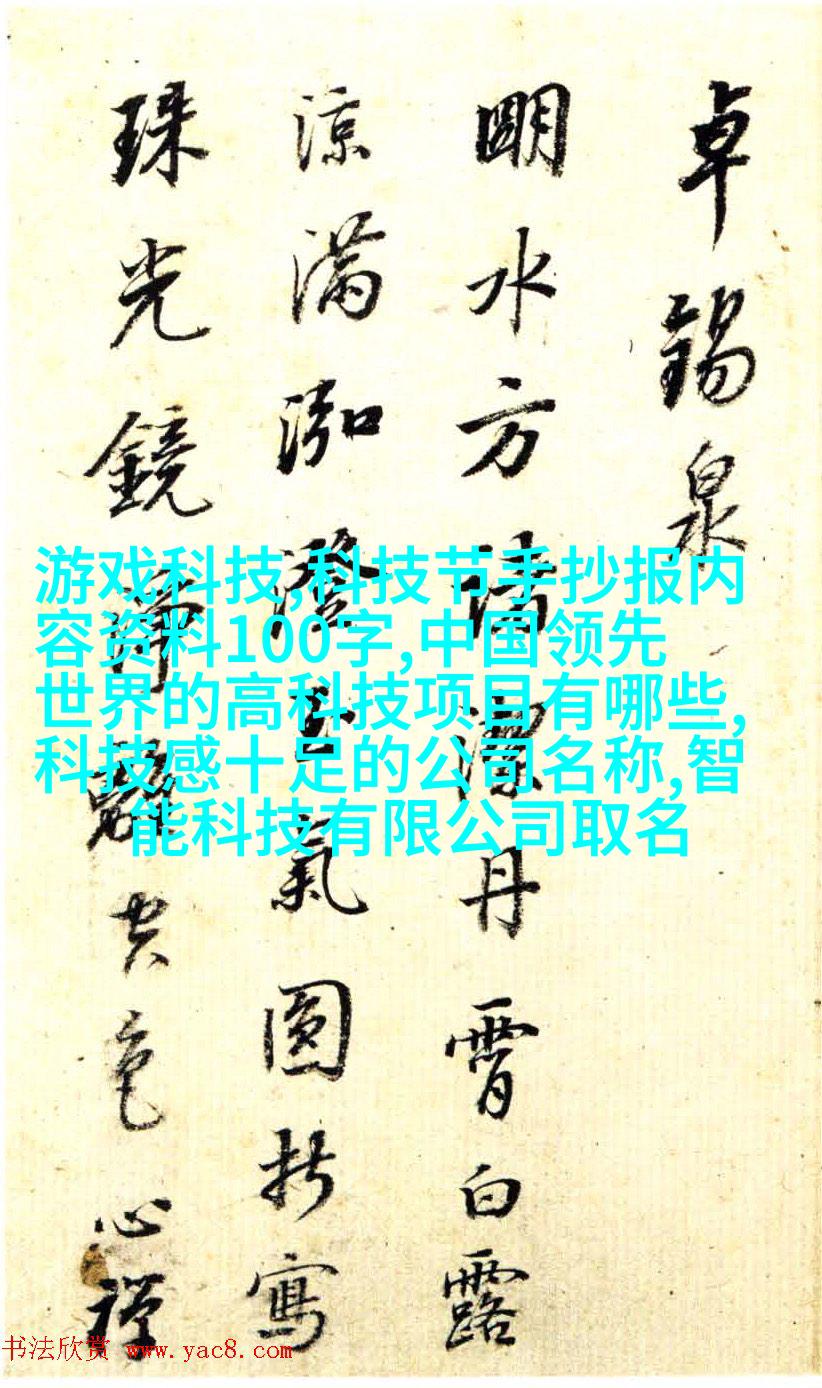 卓錫泉
明水方潔丹霄白露
涼滿泓澄玉氣圓折寫
珠光鏡淨空色心禪
游戏科技,科技节手抄报内
容资料100字,中国领先
世界的高科技项目有哪些,
科技感十足的公司名称,智
能科技有限公司取名
书法欣赏 www.yac8.com